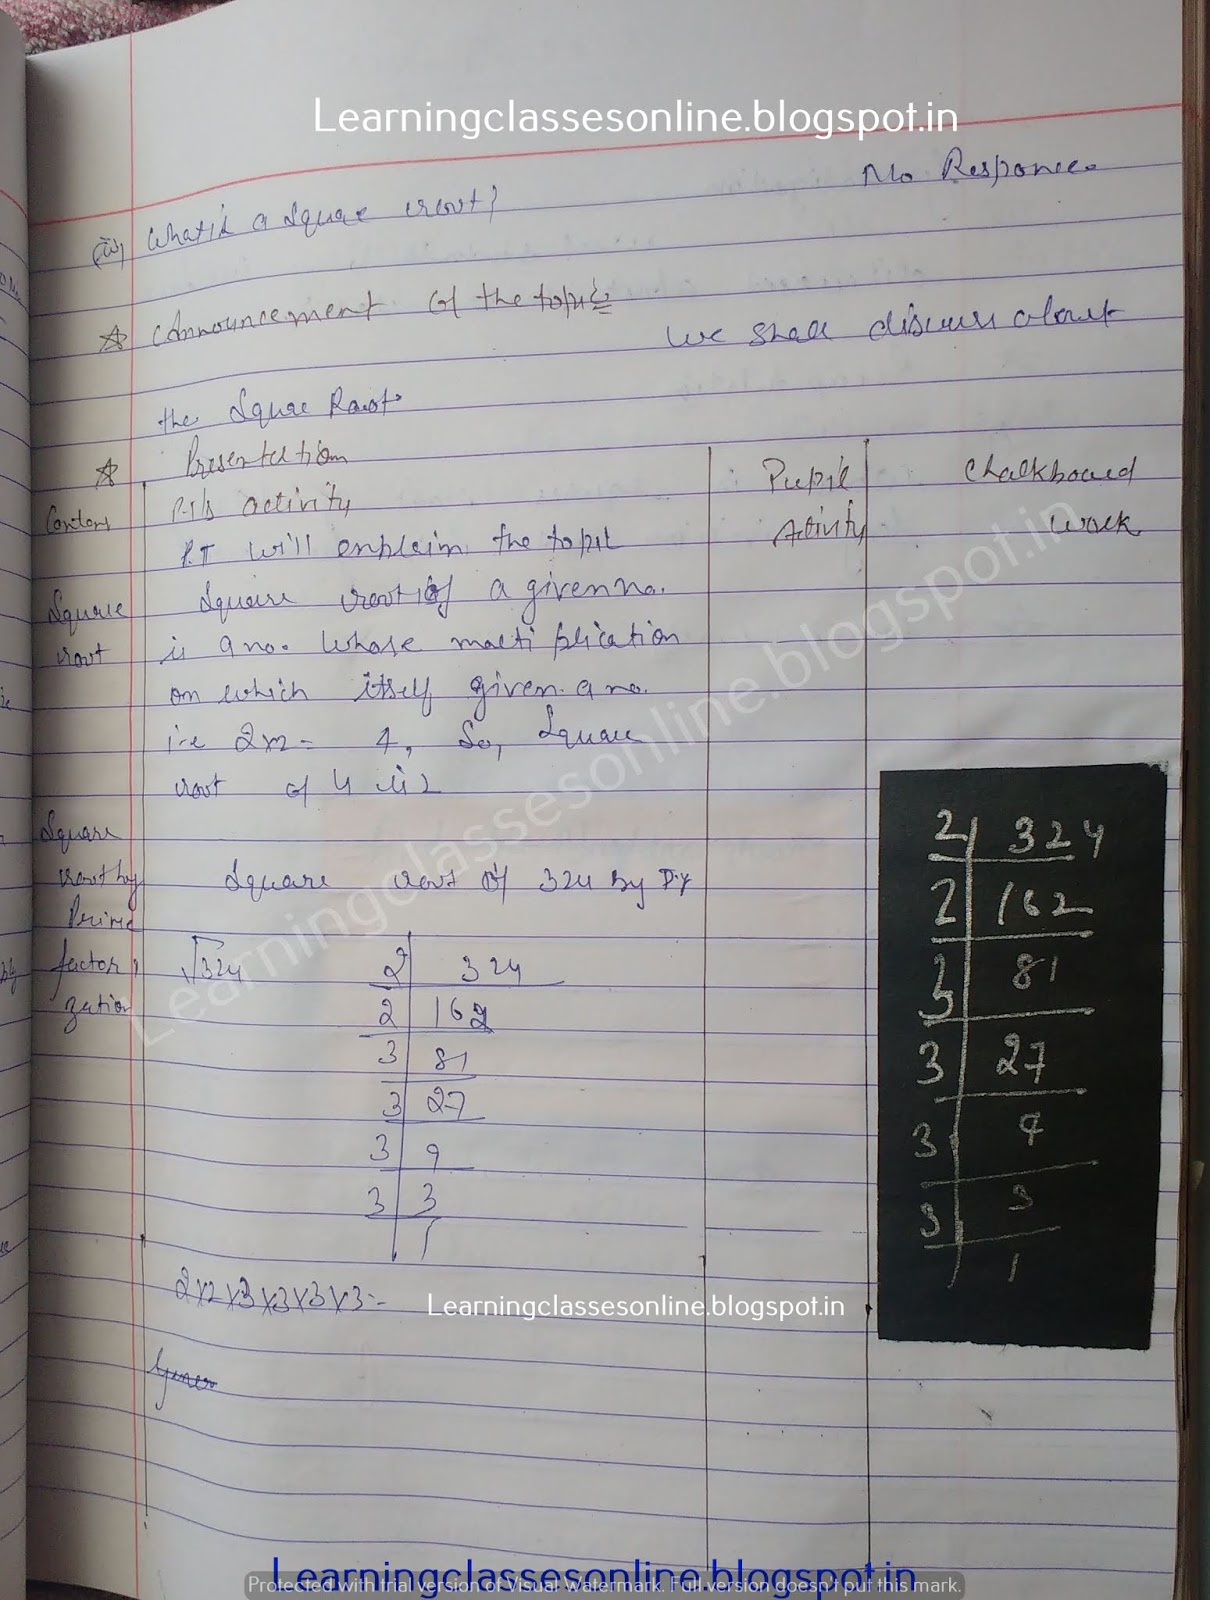 Learningclassesonline.blogspot.in
No Responce.
What is a Square root?
☆ Announcement of the topic
We shall discuss about
the Square Root.
☆ Presentation
Content
P.T's activity
Pupil Activity
Chalkboard Work
P.T will explain the topic
Square root
Square root of a given no.
is a no. whose multiplication
on which itself given a no.
i.e 2x2 = 4, So, Square
root of 4 is 2
Square root by Prime factorization
Square root of 324 by P.f
√324
2 | 324
2 | 162
3 | 81
3 | 27
3 | 9
3 | 3
1
2x2x3x3x3x3 =
2 | 324
2 | 162
3 | 81
3 | 27
3 | 9
3 | 3
1
Learningclassesonline.blogspot.in
Learningclassesonline.blogspot.in
Learningclassesonline.blogspot.in
Protected with trial version of Visual Watermark. Full version doesn't put this mark.